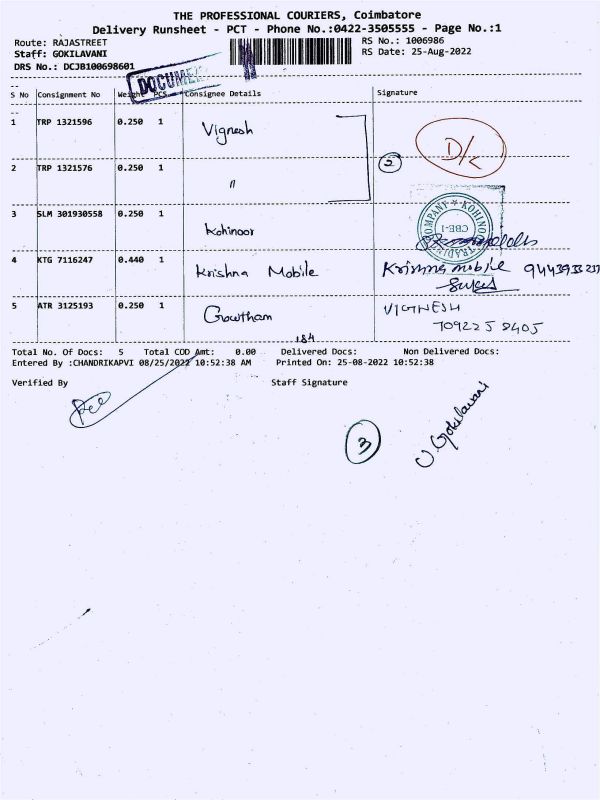 THE PROFESSIONAL COURIERS, Coimbatore
Delivery Runsheet - PCT - Phone No.:0422-3505555 - Page No.:1
Route: RAJASTREET
RS No.: 1006986
Staff: GOKILAVANI
RS Date: 25-Aug-2022
DRS No.: DCJB100698601
DOCUMENT
S No Consignment No Weight PCS Consignee Details Signature
1 TRP 1321596 0.250 1 Vignesh D/C
2 TRP 1321576 0.250 1 〃 2
3 SLM 301930558 0.250 1 Kohinoor
COMPANY ★ KOHINOOR TRADING
CBE-1
4 KTG 7116247 0.440 1 Krishna Mobile Krishna mobile
5 ATR 3125193 0.250 1 Gowtham VIGNESH
184
Total No. Of Docs: 5 Total COD Amt: 0.00 Delivered Docs: Non Delivered Docs:
Entered By :CHANDRIKAPVI 08/25/2022 10:52:38 AM Printed On: 25-08-2022 10:52:38
Verified By Staff Signature
3
U. Gokilavani